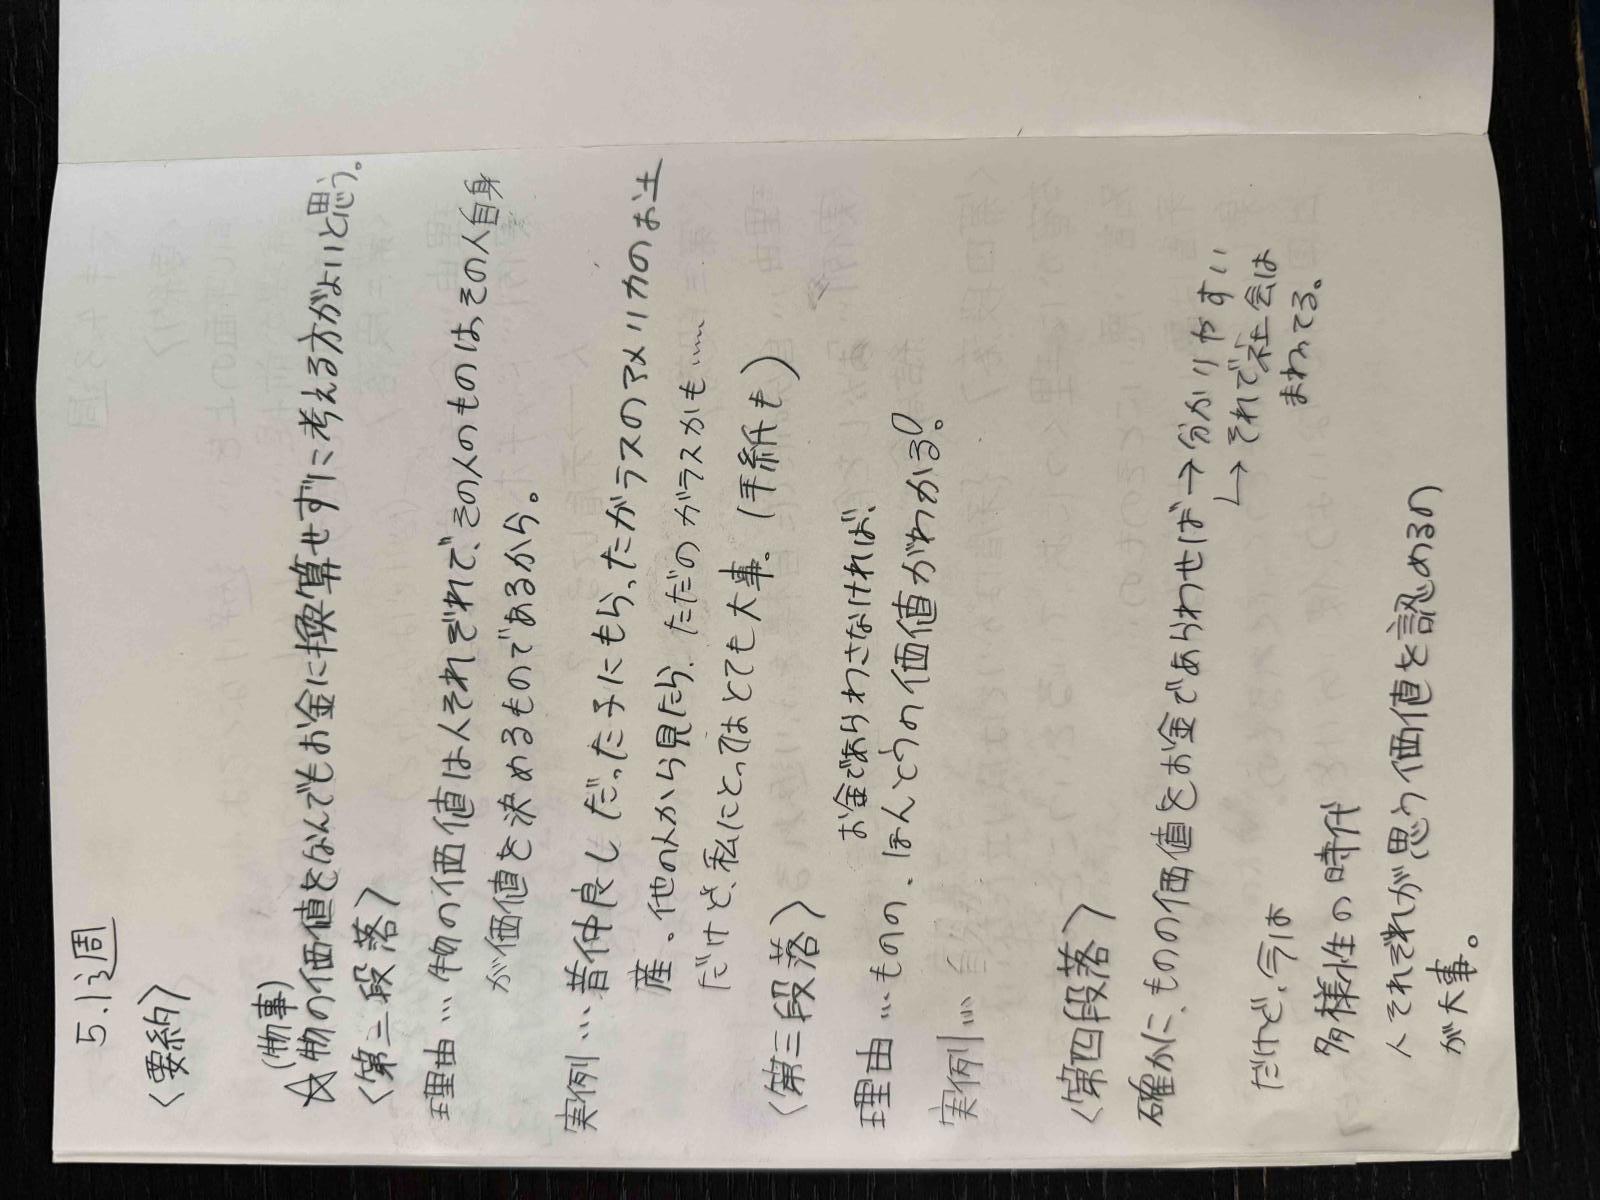 5.1週
〈要約〉
(物事)
☆物の価値をなんでもお金に換算せずに考える方がよいと思う。
〈第二段落〉
理由…物の価値は人それぞれで、その人のものはその人自身
が価値を決めるものであるから。
実例…昔仲良しだった子にもらったガラスのアメリカのお土
産。他の人から見たら、ただのガラスかも……
だけど、私にとってはとても大事。(手紙も)
〈第三段落〉
お金であらわさなければ、
理由…ものの、ほんとうの価値がわかる。
実例…
〈第四段落〉
確かに、ものの価値をお金であらわせば→分かりやすい
↳それで社会は
まわってる。
だけど、今は
多様性の時代
人それぞれが思う価値を認めるの
が大事。